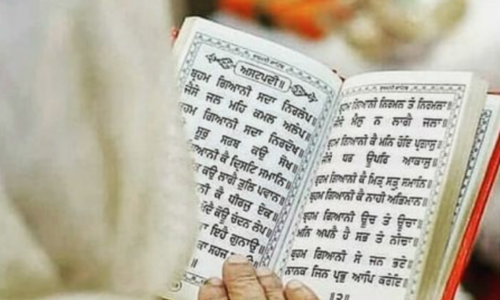 ਅਸਟਪਦੀ॥
ਬ੍ਰਹਮ ਗਿਆਨੀ ਸਦਾ ਨਿਰਲੇਪ॥
ਜੈਸੇ ਜਲ ਮਹਿ ਕਮਲ ਅਲੇਪ॥
ਬ੍ਰਹਮ ਗਿਆਨੀ ਸਦਾ ਨਿਰਦੋਖ॥
ਸੂਰੁ ਸਰਬ ਕਉ ਸੋਖ॥
ਗਿਆਨੀ ਕੈ ਦ੍ਰਿਸਟਿ ਸਮਾਨਿ॥
ਕਉ ਲਾਗੈ ਤੁਲਿ ਪਵਾਨ॥
ਕੈ ਧੀਰਜੁ ਏਕ॥
ਕੋਊ ਚੰਦਨ ਲੇਪ॥
ਕਾ ਇਹੈ ਗੁਨਾਉ॥
ਕਾ ਸਹਜ
ਬ੍ਰਹਮ ਗਿਆਨੀ ਨਿਰਮਲ ਤੇ ਨਿਰਮਲਾ॥
ਜੈਸੇ ਮੈਲੁ ਨ ਲਾਗੈ ਜਲਾ॥
ਬ੍ਰਹਮ ਗਿਆਨੀ ਕੈ ਮਨਿ ਹੋਇ ਪ੍ਰਗਾਸੁ॥
ਜੈਸੇ ਧਰ ਊਪਰਿ ਆਕਾਸੁ॥
ਬ੍ਰਹਮ ਗਿਆਨੀ ਕੈ ਮਿਤ੍ਰ ਸਤ੍ਰੁ ਸਮਾਨਿ॥
ਬ੍ਰਹਮ ਗਿਆਨੀ ਕੈ ਨਾਹੀ ਅਭਿਮਾਨ॥
ਬ੍ਰਹਮ ਗਿਆਨੀ ਊਚ ਤੇ ਊਚਾ॥
ਮਨਿ ਅਪਨੈ ਹੈ ਸਭ ਤੇ ਨੀਚਾ॥
ਬ੍ਰਹਮ ਗਿਆਨੀ ਸੇ ਜਨ ਭਏ॥
ਨਾਨਕ ਜਿਨ ਪ੍ਰਭੁ ਆਪਿ ਕਰੇਇ
॥੨॥